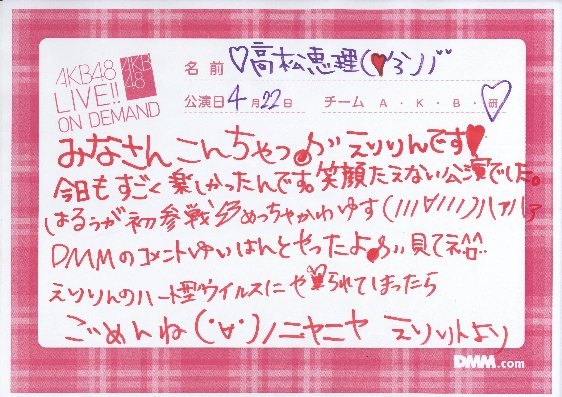 AKB48
LIVE!!
ON DEMAND
AKB
48
名前 ♡高松恵理(♥´3`)ﾉ゛
公演日 4月22日 チーム A・K・B・研
みなさんこんちゃっ♪ えりりんです♥
今日もすごく楽しかったんです。笑顔たえない公演でした。
はるぅが初参戦 めっちゃかわゆす(///∀///)ハァハァ
DMMのコメントゆいはんとやったよ♪ 見てネ^^
えりりんのハート型ウイルスにや♥られてしまったら
ごめんね(・∀・)ノニヤニヤ えりりんより
DMM.com